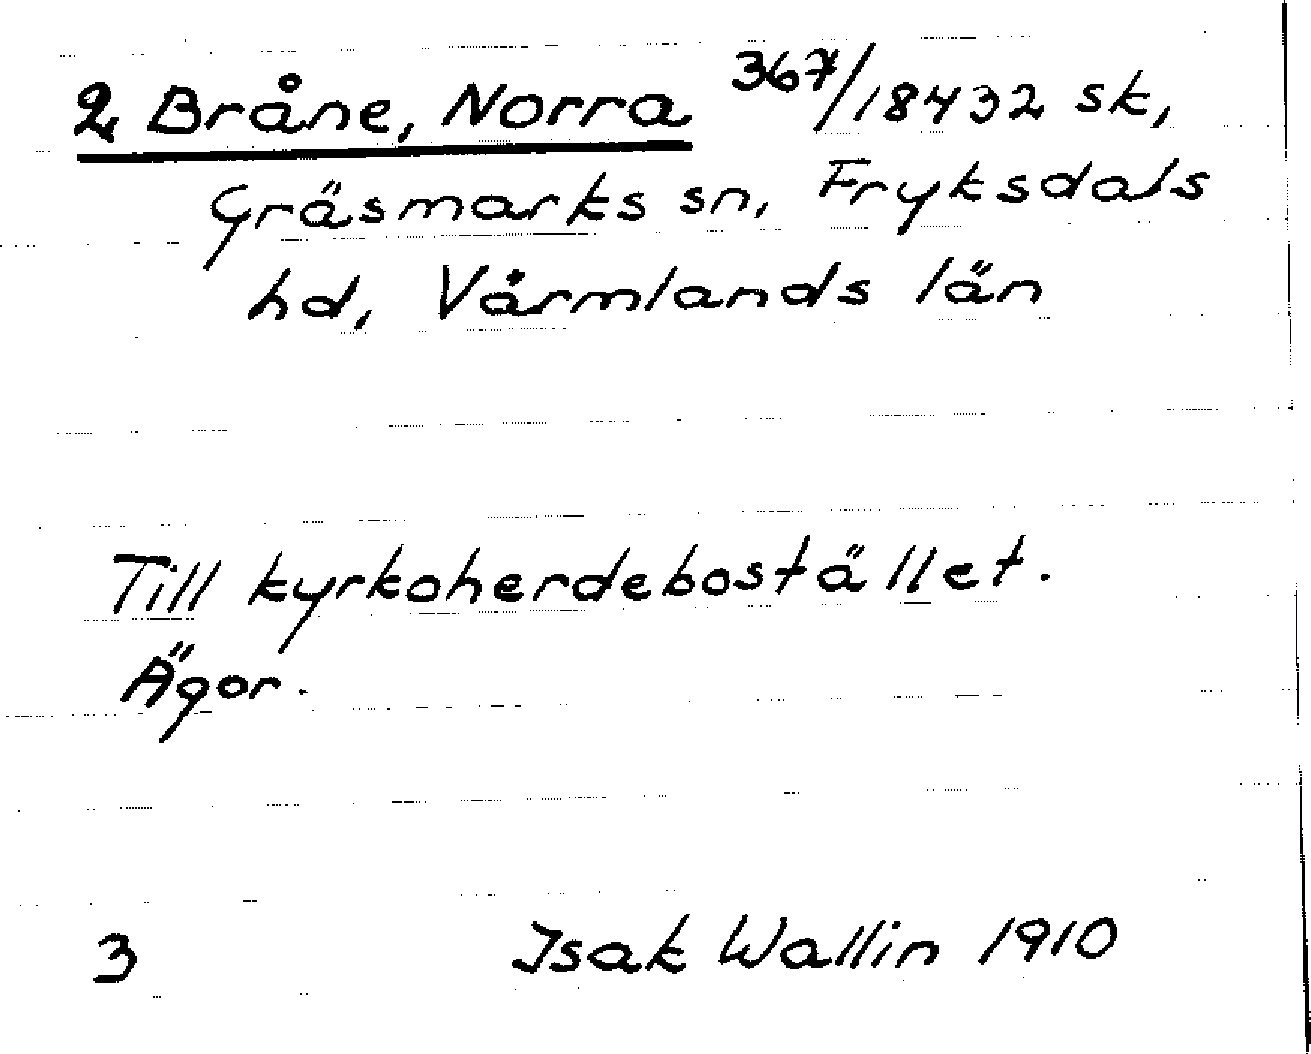 2, Bråne, Norra 367/18432 sk,
Gräsmarks sn, Fryksdals
hd, Värmlands län
Till kyrkoherdebostället.
Ägor.
3 Isak Wallin 1910